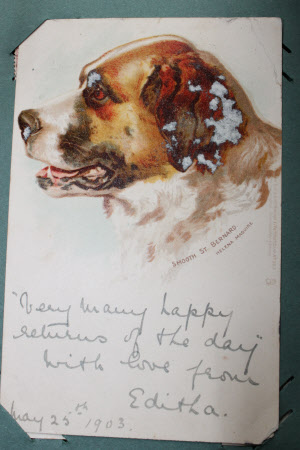 SMOOTH ST. BERNARD
HELENA MAGUIRE
"Very many happy
returns of the day"
With love from
Editha.
May 25th 1903.